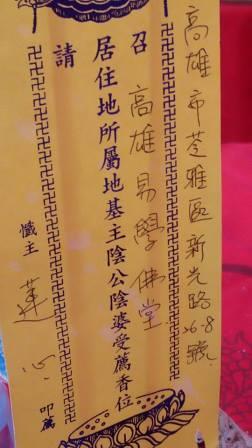 高雄市苓雅區新光路26-8號
召
請
高雄易學佛堂
居住地所屬地基主陰公陰婆受薦香位
懺主 蓮心 叩薦